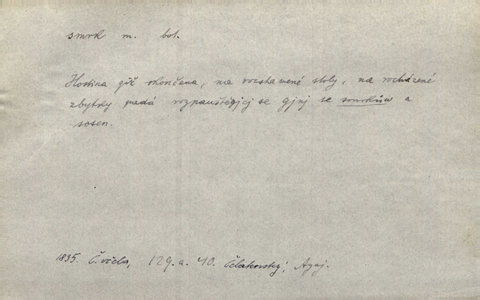 smrk m. bot.
Hostina giž skončena, na rozstawené stoly, na rozházené
zbytky padá rozpauštěgjcj se gjnj se smrkůw a
sosen.
1835. Č. včela, 129. a. 40. Čelakovský, Agaj.